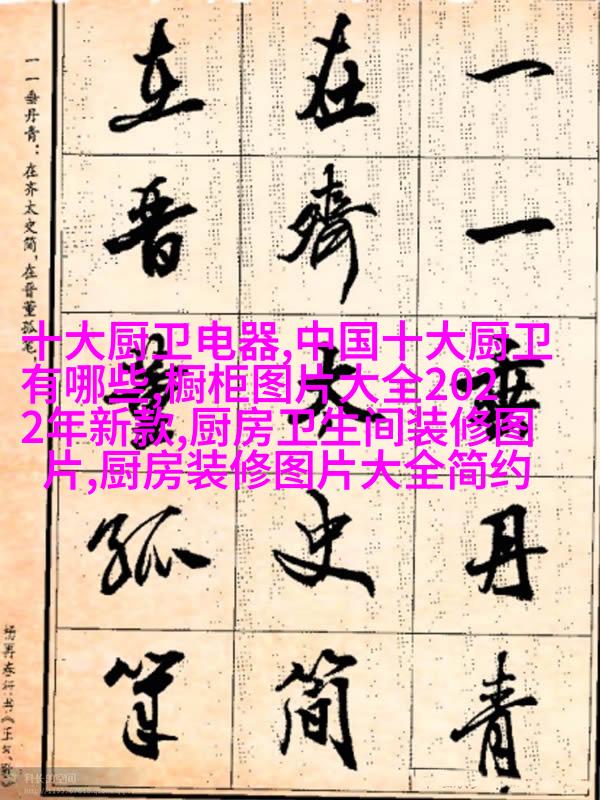 一一垂丹青
在齊太史简
在晋董狐筆
一一垂丹青：在齐太史简，在晋董狐笔，
杨再春行书《正气歌
十大厨卫电器,中国十大厨卫
有哪些,橱柜图片大全202
2年新款,厨房卫生间装修图
片,厨房装修图片大全简约
科长的空间